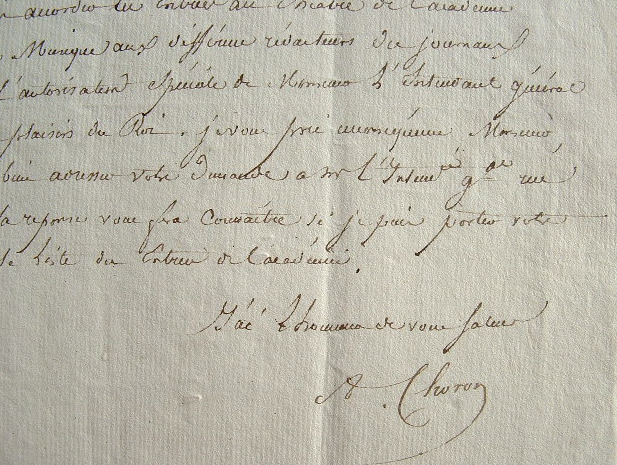 accorder les entrées au théâtre de l'académie
Musique aux différens rédacteurs de journaux
l'autorisation spéciale de Monsieur l'Intendant général
plaisirs du Roi. je vous prie Monsieur
votre demande a mr l'Intend
la réponse vous fera connaître si je puis porter votre
la liste des entrées de l'académie.
J'ai l'honneur de vous saluer
A. Choron